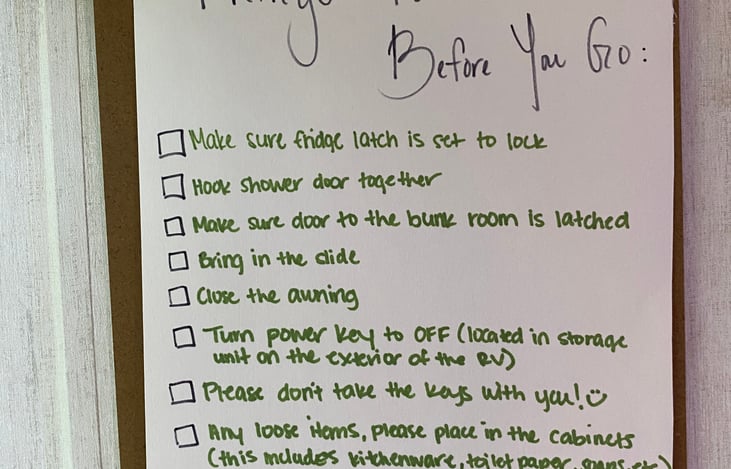 Things
Before You Go:
Make sure fridge latch is set to lock
Hook shower door together
Make sure door to the bunk room is latched
Bring in the slide
Close the awning
Turn power key to OFF (located in storage
unit on the exterior of the RV)
Please don't take the keys with you! ☺
Any loose items, please place in the cabinets
(this includes kitchenware, toilet paper, etc)